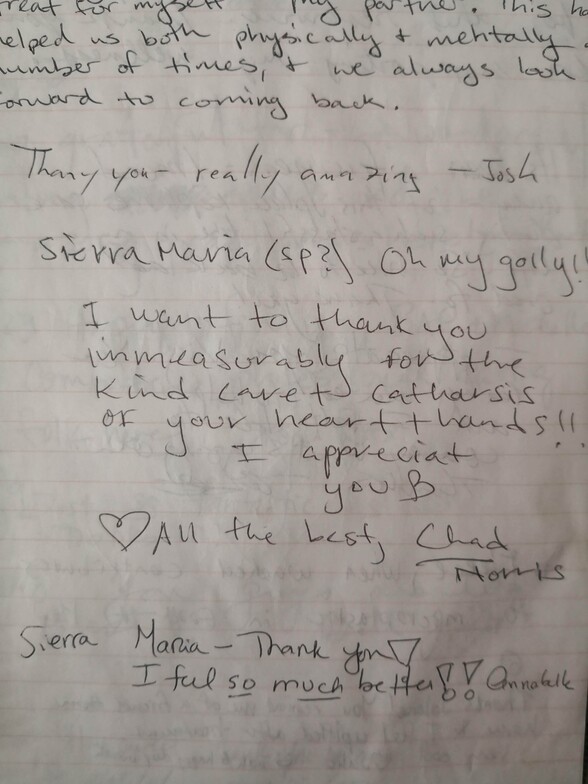 treat for myself my partner. This ha
elped us both physically + mentally a
number of times, + we always look
forward to coming back.
Thany you - really amazing - Josh
Sierra Maria (sp?) Oh my golly!!
I want to thank you
immeasurably for the
kind care + catharsis
of your heart + hands!!
I appreciat
you B
♡ All the best, Chad
Norris
Sierra Maria - Thank you!
I ful so much better!! Annabelle